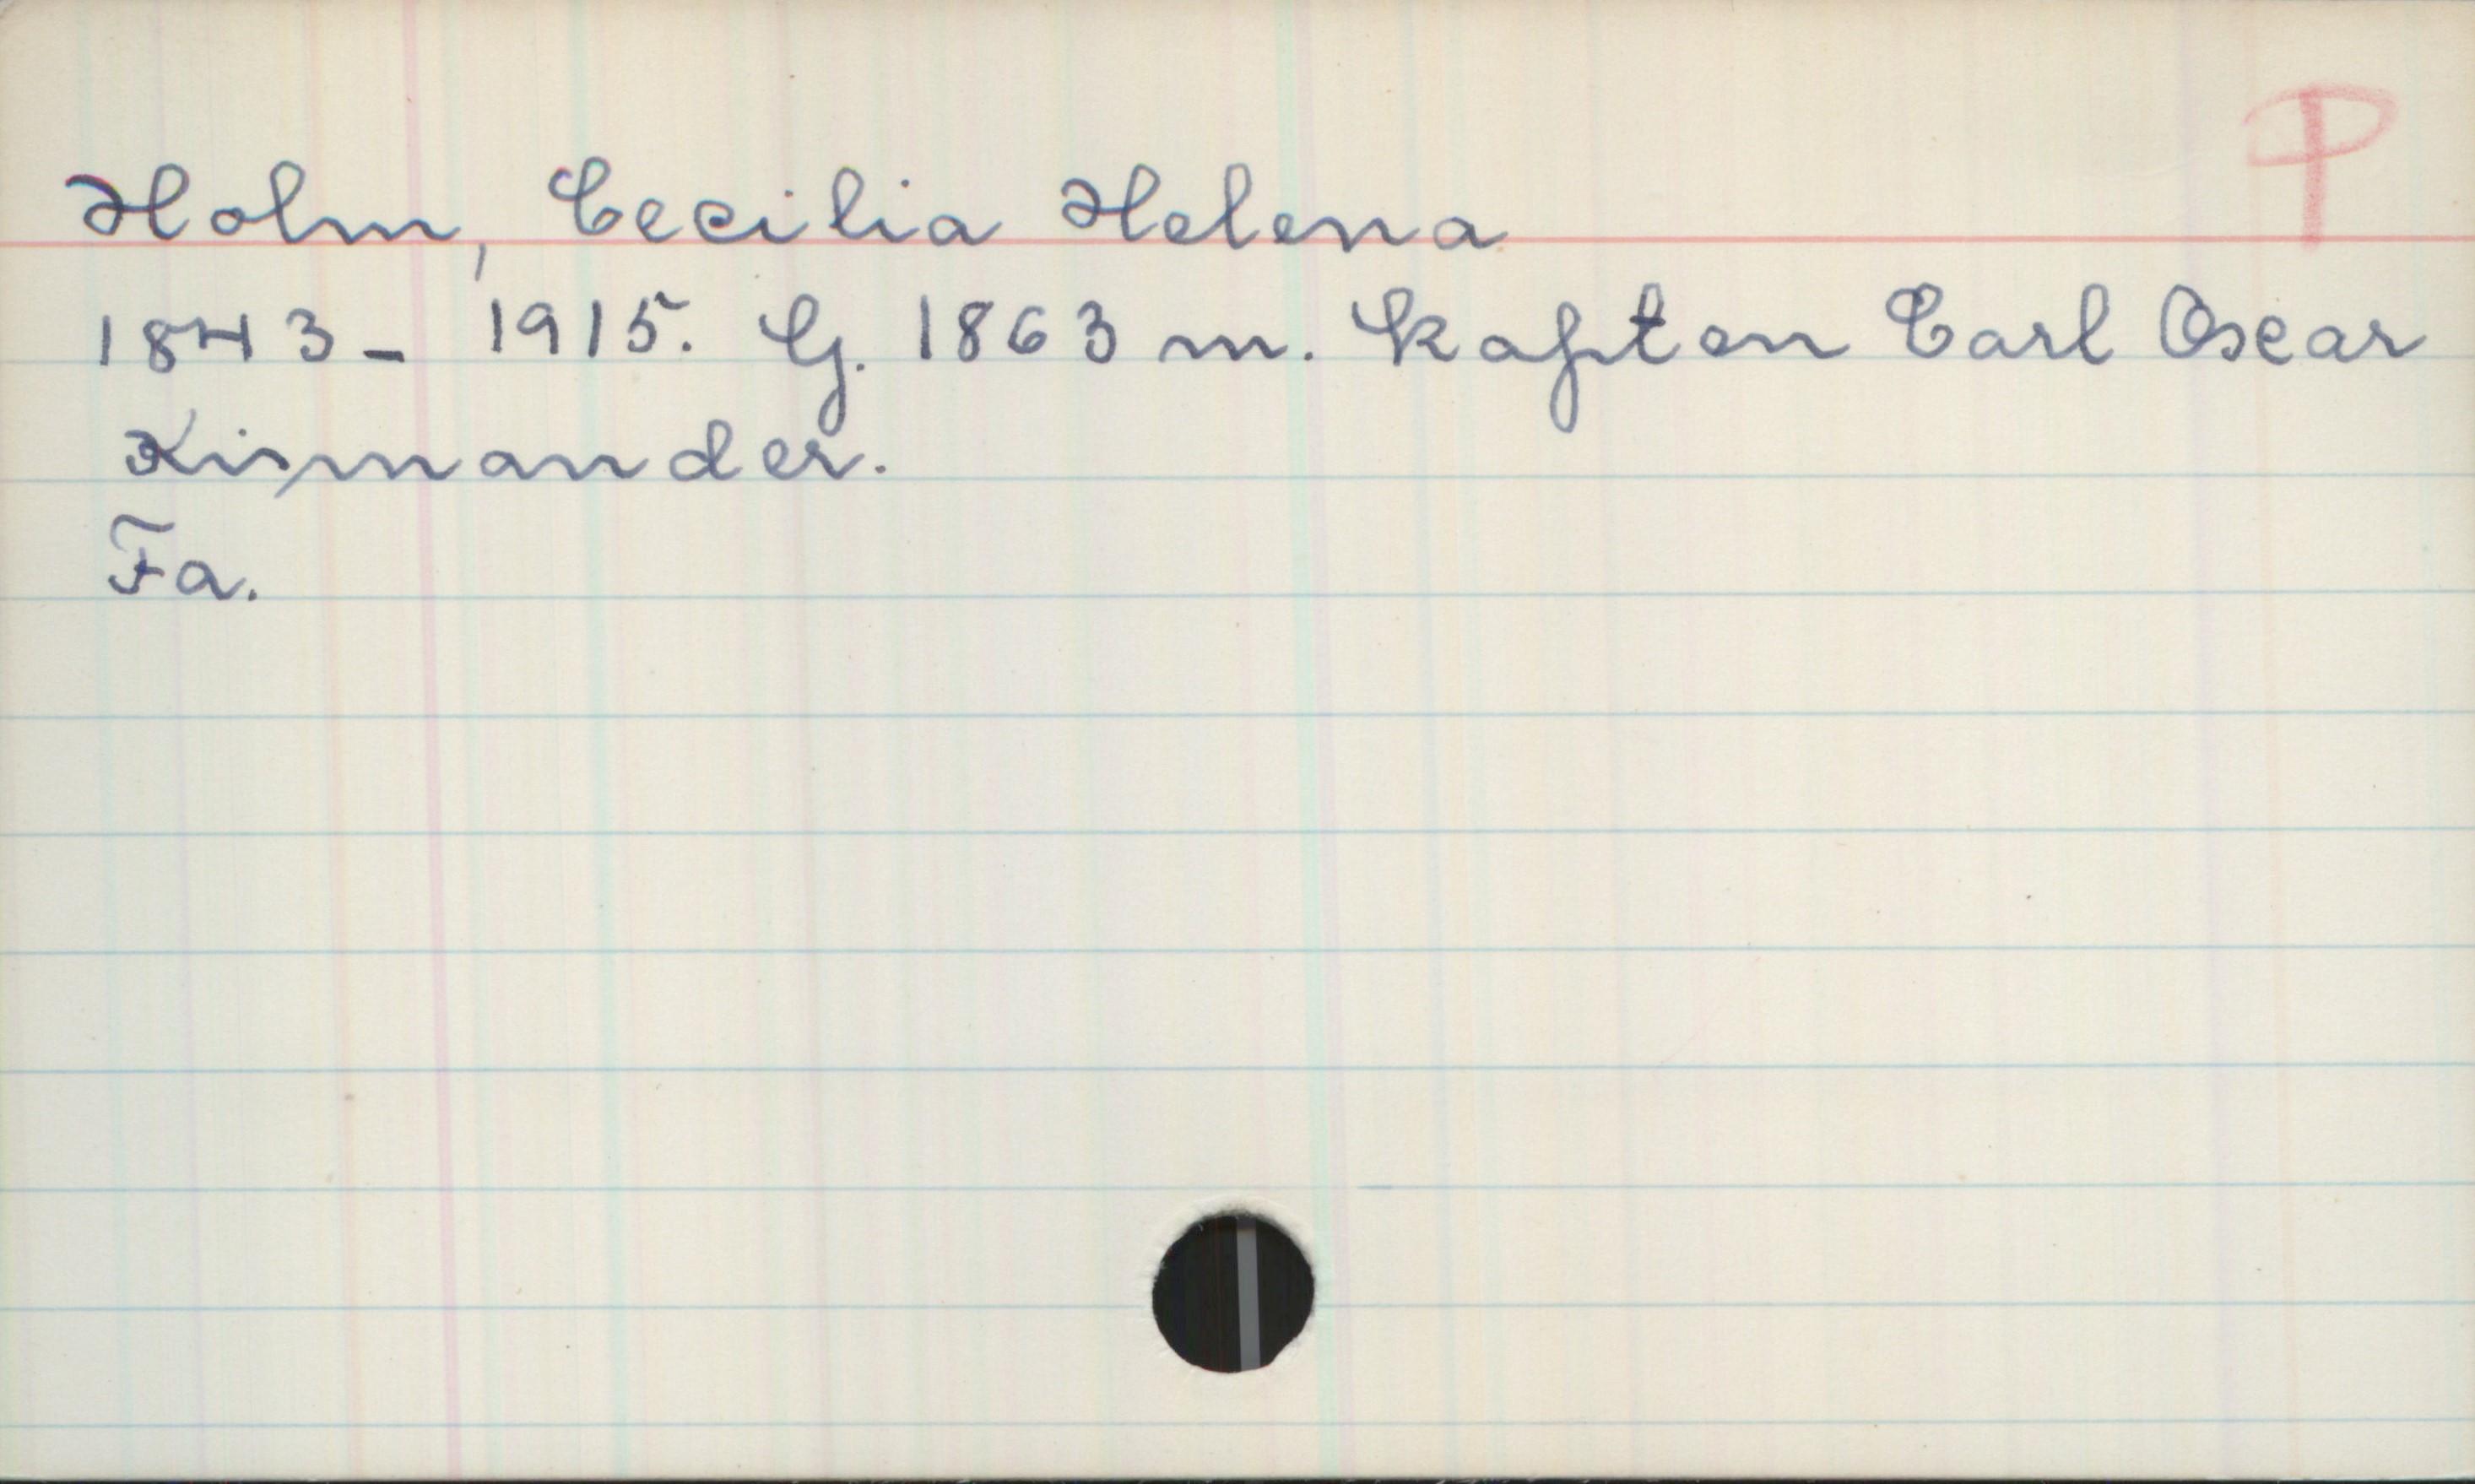 P
Holm, Cecilia Helena
1843 - 1915. G. 1863 m. kapten Carl Oscar
Kismander.
Fa.